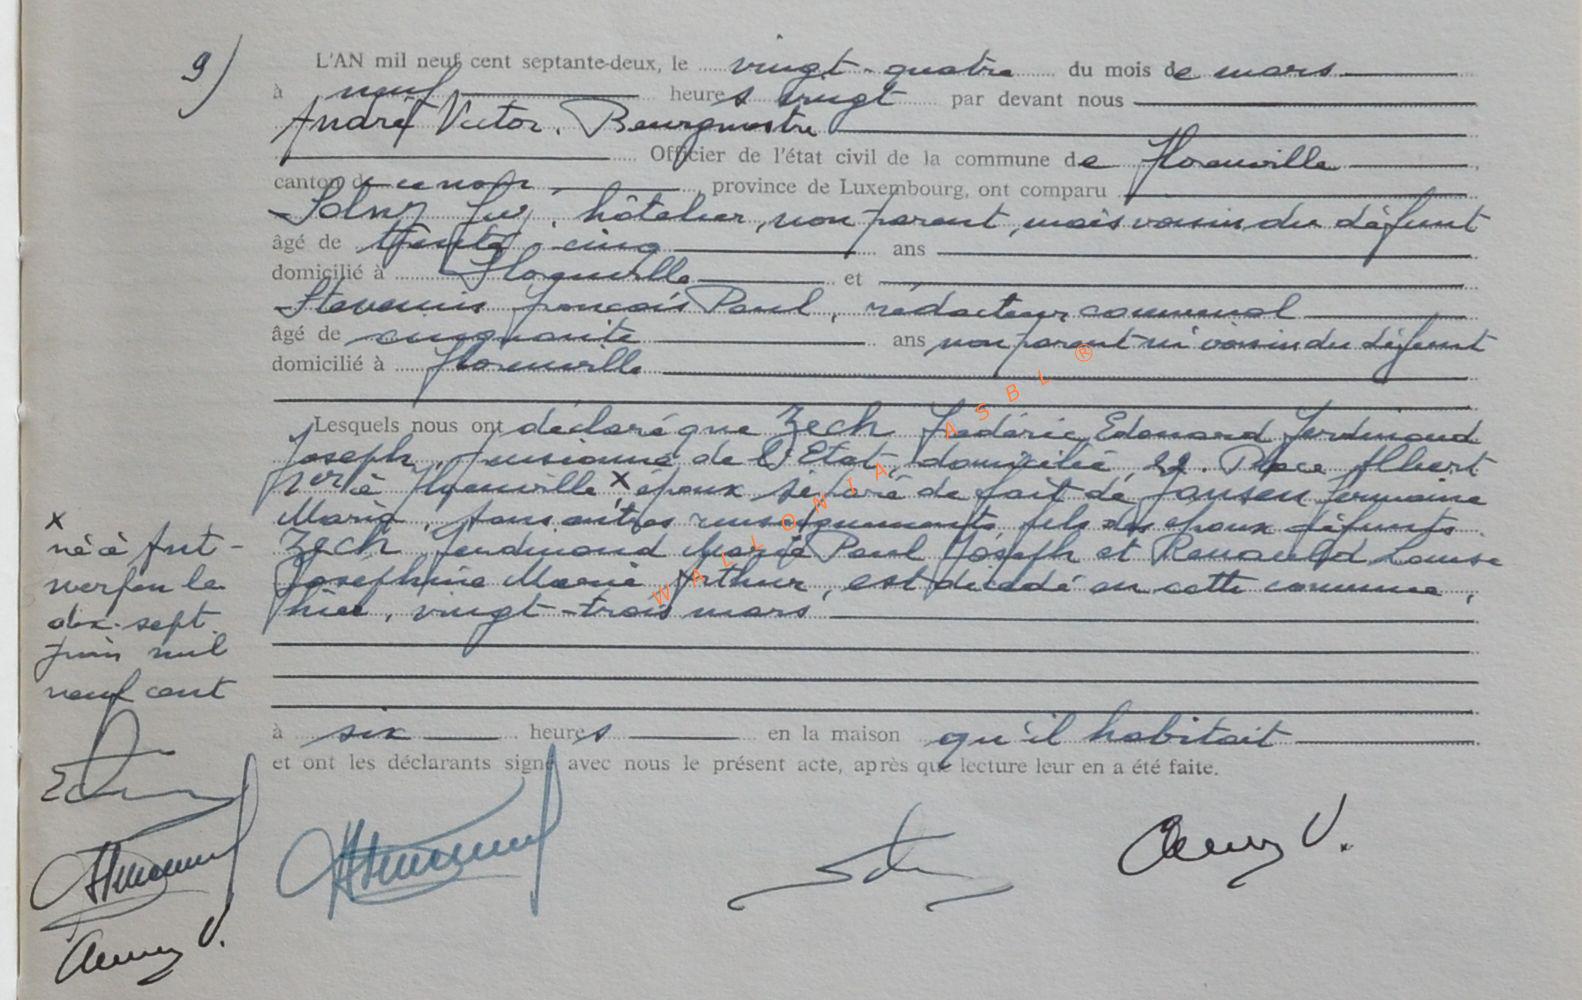 9)
L'AN mil neuf cent septante-deux, le vingt-quatre du mois de mars
à neuf heures vingt par devant nous
André Victor, Bourgmestre
Officier de l'état civil de la commune de Florenville
canton de province de Luxembourg, ont comparu
Guy, hôtelier, non parent, mais voisin du défunt
âgé de trente-cinq ans
domicilié à Florenville et
Stevenin François Paul, rédacteur communal
âgé de cinquante ans non parent ni voisin du défunt
domicilié à Florenville
Lesquels nous ont déclaré que Zech Frédéric Edouard Ferdinand
Joseph, pensionné de l'Etat, domicilié, 22, Place Albert
1er à Florenville x, époux séparé de fait de Jansen Germaine
Marie, sans autres renseignements, fils des époux défunts
Zech Ferdinand Marie Paul Joseph et Renauld Louise
Joséphine Marie Arthur, est décédé en cette commune,
hier, vingt-trois mars
à six heures en la maison qu'il habitait
et ont les déclarants signé avec nous le présent acte, après que lecture leur en a été faite.
x
né à Ant-
werpen le
dix-sept
juin mil
neuf cent
WALLONIA ASBL ®